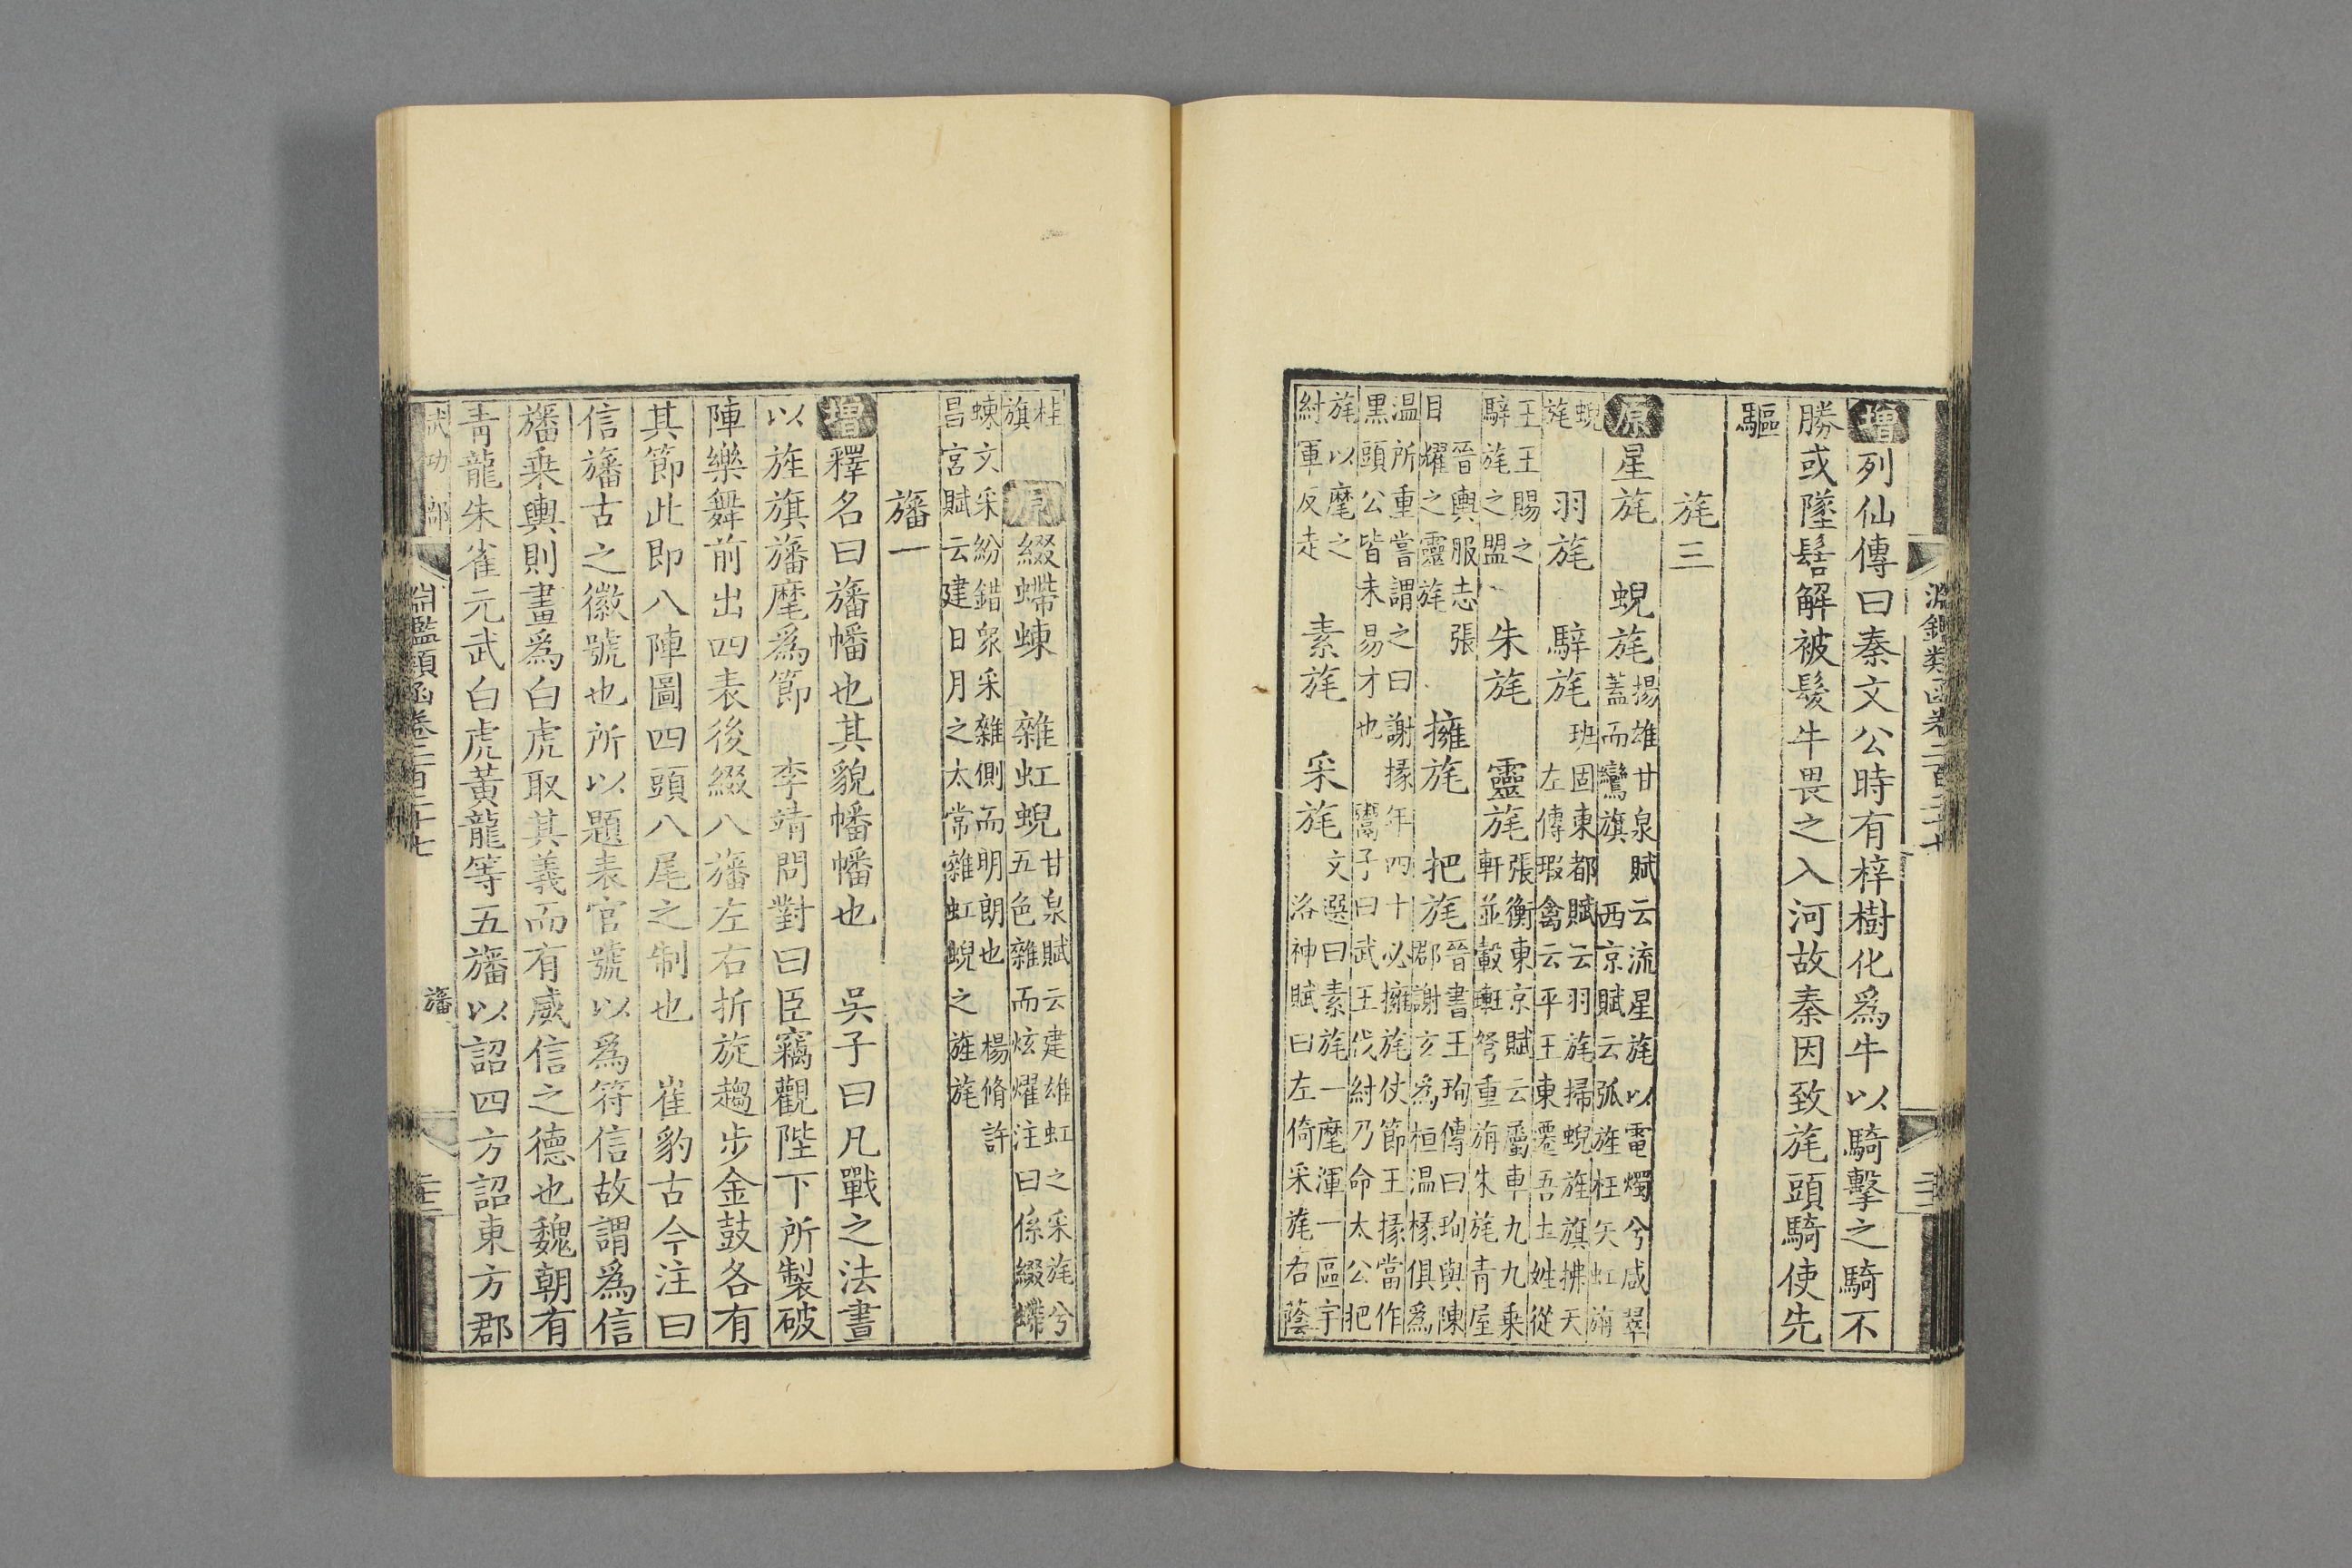 淵鑑類函卷二百二十七
增列仙傳曰秦文公時有梓樹化爲牛以騎擊之騎不
勝或墜髻解被髮牛畏之入河故秦因致旄頭騎使先
驅
旄三
原星旄 蜺旄揚雄甘泉賦云流星旄以電燭兮咸翠蓋而鸞旗 西京賦云弧旌枉矢虹旃
蜺旄 羽旄 騂旄班固東都賦云羽旄掃蜺旌旗拂天 左傳瑕禽云平王東遷吾七姓從
王王賜之騂旄之盟 朱旄 靈旄張衡東京賦云屬車九九乗軒並轂䡴弩重旃朱旄青屋
晉輿服志張目耀之靈旄 擁旄 把旄晉書王珣傳曰珣與陳郡謝玄爲桓温椽俱爲
温所重嘗謂之曰謝掾年四十必擁旄仗節王掾當作黒頭公皆未易才也 鬻子曰武王伐紂乃命太公把
旄以麾之紂軍反走 素旄 采旄文選曰素旄一麾渾一區宇 洛神賦曰左倚采旄右蔭
桂旗 原綴䗖蝀 雜虹蜺甘泉賦云建雄虹之采旄兮五色雜而炫燿注曰係綴䗖
蝀文采紛錯衆采雜側而明朗也 楊脩許昌宫賦云建日月之太常雜虹蜺之旌旄
旛一
增釋名曰旛幡也其貌幡幡也 吳子曰凡戰之法晝
以旌旗旛麾爲節 李靖問對曰臣竊觀陛下所製破
陣樂舞前出四表後綴八旛左右折旋趨步金鼓各有
其節此即八陣圖四頭八尾之制也 崔豹古今注曰
信旛古之徽號也所以題表官號以爲符信故謂爲信
旛乗輿則畫爲白虎取其義而有威信之德也魏朝有
青龍朱雀元武白虎黃龍等五旛以詔四方詔東方郡
武功部 淵鑑類函卷二百二十七 旛